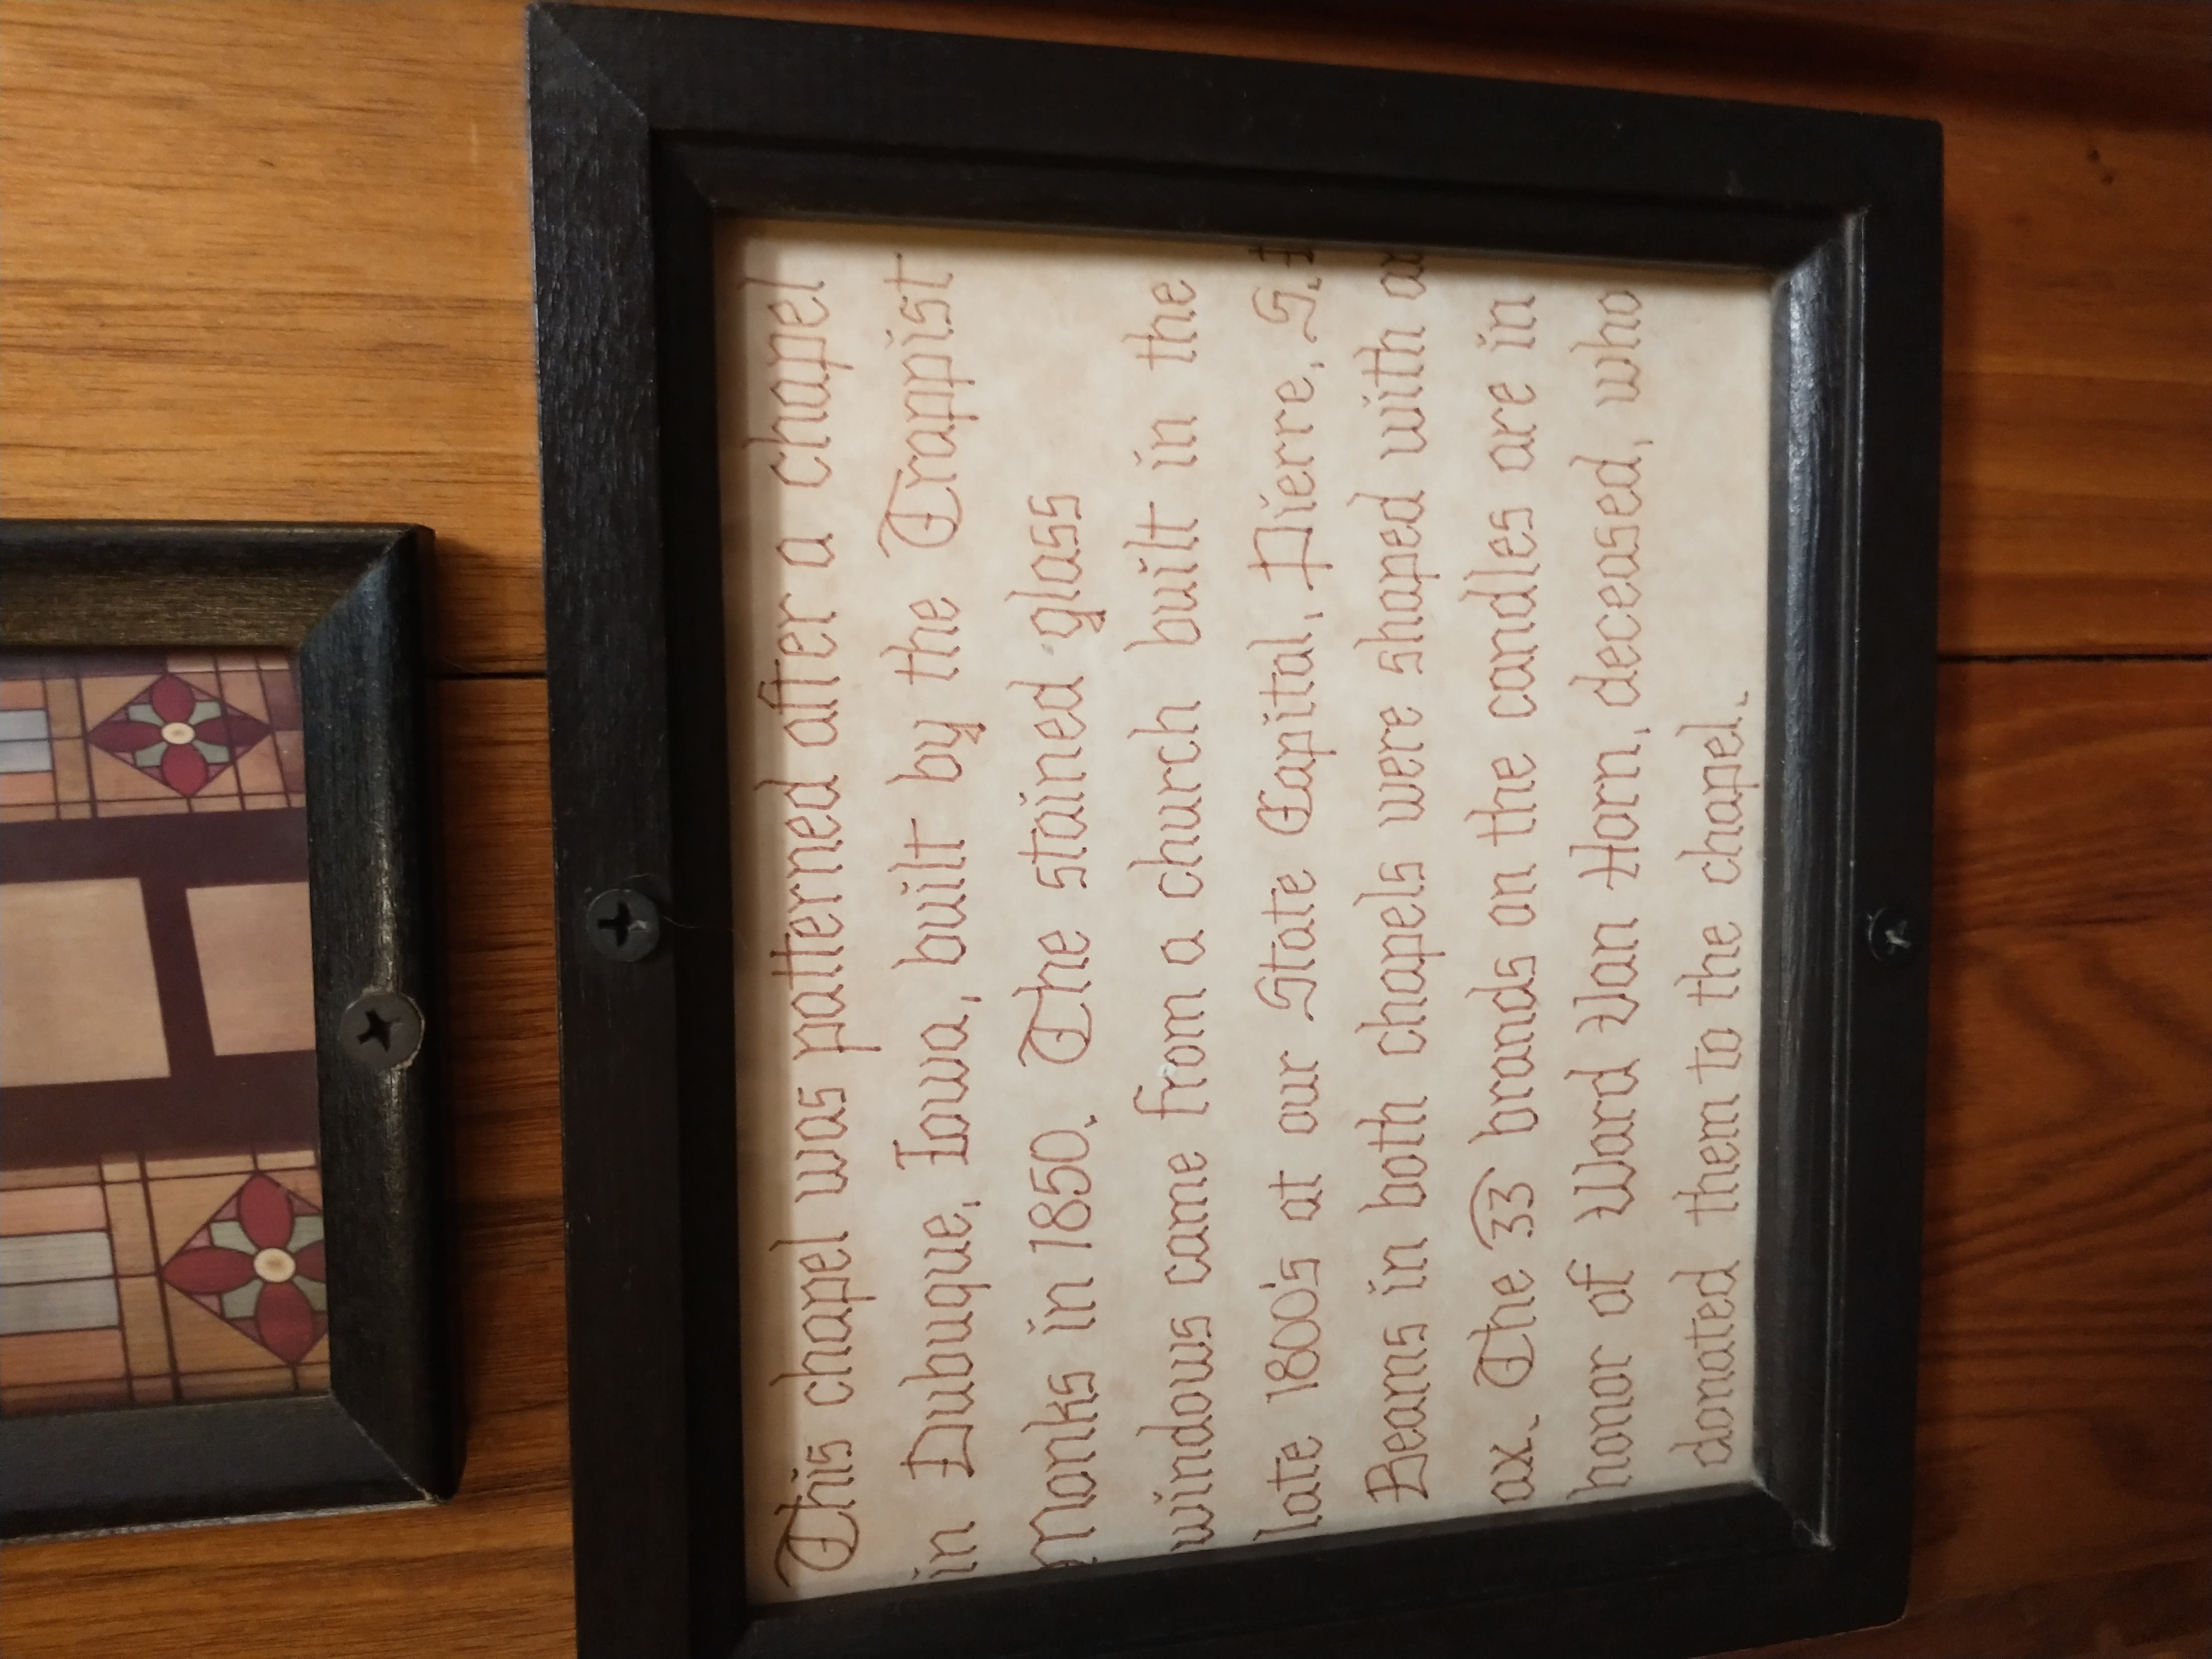 This chapel was patterned after a chapel
in Dubuque, Iowa, built by the Trappist
Monks in 1850. The stained glass
windows came from a church built in the
late 1800's at our State Capital, Pierre, S.
Beams in both chapels were shaped with
ax. The 33 brands on the candles are in
honor of Ward Van Horn, deceased, who
donated them to the chapel.